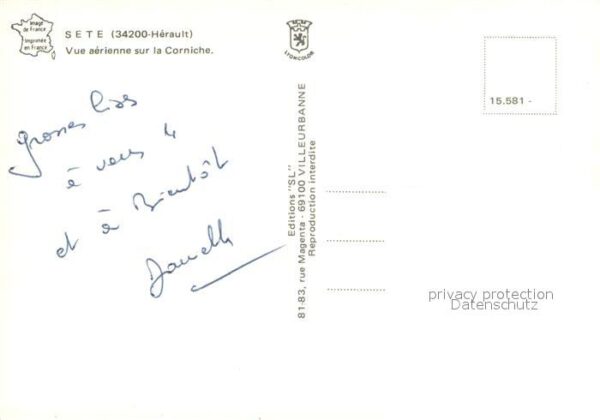 Image
de France
Imprimée
en France
SETE (34200-Hérault)
Vue aérienne sur la Corniche.
LYONCOLOR
15.581 -
grosses bises
à vous 4
et à Bientôt
Editions "SL"
81-83, rue Magenta - 69100 VILLEURBANNE
Reproduction interdite
privacy protection
Datenschutz